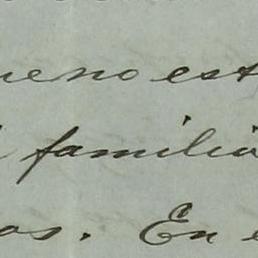 ueno est
familia
os. En e